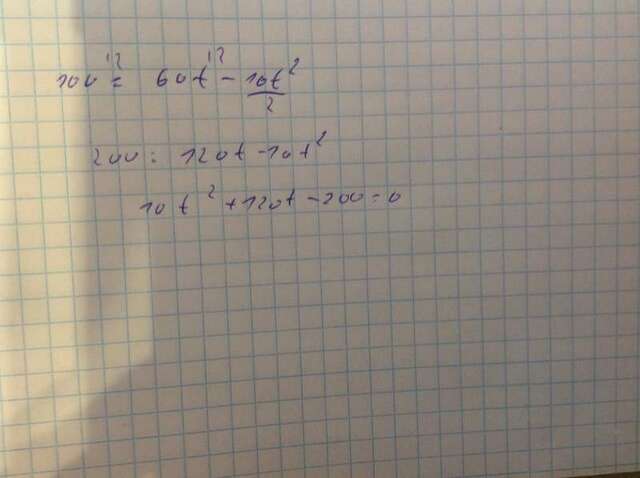 100^{12} = 60t^{12} - \frac{10t^2}{2}
200 = 120t - 10t^2
10t^2 + 120t - 200 = 0